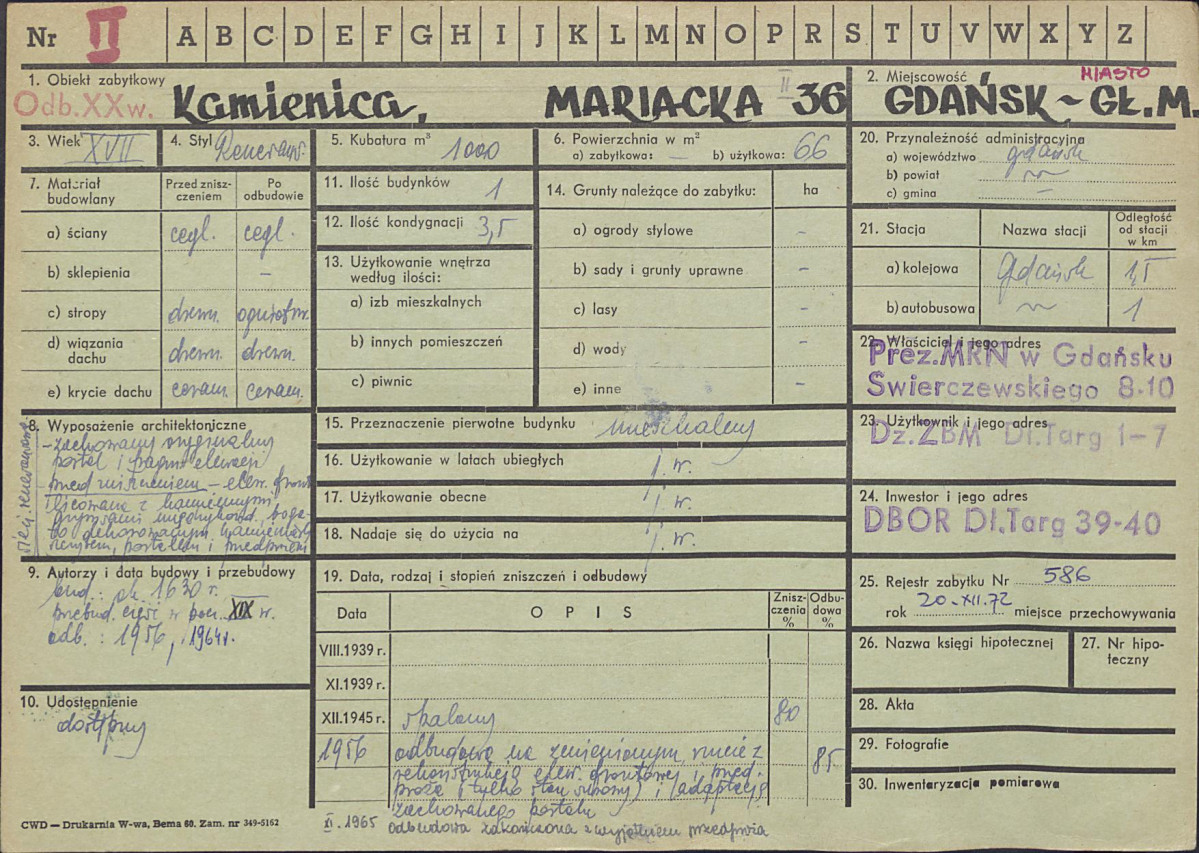 Nr II A B C D E F G H I J K L M N O P R S T U V W X Y Z
1. Obiekt zabytkowy
Odb.XXw.
Kamienica, MARIACKA II 36
2. Miejscowość
MIASTO
GDAŃSK - GŁ.M.
3. Wiek XVII
4. Styl Renesans.
5. Kubatura m³ 1000
6. Powierzchnia w m²
a) zabytkowa: — b) użytkowa: 66
7. Materiał budowlany
Przed zniszczeniem
Po odbudowie
a) ściany cegl. cegl.
b) sklepienia –
c) stropy drewn. ogniotrw.
d) wiązania dachu drewn. drewn.
e) krycie dachu ceram. ceram.
8. Wyposażenie architektoniczne
- zachowany oryginalny
portal i fragm. elewacji
przed zniszczeniem – elew. front
licowana z kamiennymi
szczytem, portalem i przedprożem
9. Autorzy i data budowy i przebudowy
bud.: ok. 1630 r.
przebud. część w poł. XIX w.
odb.: 1956, 1964r.
10. Udostępnienie
dostępny
11. Ilość budynków 1
12. Ilość kondygnacji 3,5
13. Użytkowanie wnętrza według ilości:
a) izb mieszkalnych
b) innych pomieszczeń
c) piwnic
14. Grunty należące do zabytku: ha
a) ogrody stylowe –
b) sady i grunty uprawne –
c) lasy –
d) wody –
e) inne –
15. Przeznaczenie pierwotne budynku mieszkalny
16. Użytkowanie w latach ubiegłych j. w.
17. Użytkowanie obecne j. w.
18. Nadaje się do użycia na j. w.
19. Data, rodzaj i stopień zniszczeń i odbudowy
Data O P I S Zniszczenia % Odbudowa %
VIII.1939 r.
XI.1939 r.
XII.1945 r. spalony 80
1956 odbudowa na zmienionym rzucie z 85
rekonstrukcją elew. frontowej i przed-
proża (tylko stan surowy) i (adaptacją
zachowanego portalu
XI. 1965 odbudowa zakończona z wyjątkiem przedproża
20. Przynależność administracyjna
a) województwo gdańsk
b) powiat
c) gmina –
21. Stacja Nazwa stacji Odległość od stacji w km
a) kolejowa Gdańsk 1,5
b) autobusowa 1
22. Właściciel i jego adres
Prez.MRN w Gdańsku
Świerczewskiego 8-10
23. Użytkownik i jego adres
Dz.ZBM Dł.Targ 1-7
24. Inwestor i jego adres
DBOR Dł.Targ 39-40
25. Rejestr zabytku Nr 586
rok 20.XII.72 miejsce przechowywania
26. Nazwa księgi hipotecznej
27. Nr hipoteczny
28. Akta
29. Fotografie
30. Inwentaryzacja pomiarowa
CWD — Drukarnia W-wa, Bema 60. Zam. nr 349-5162